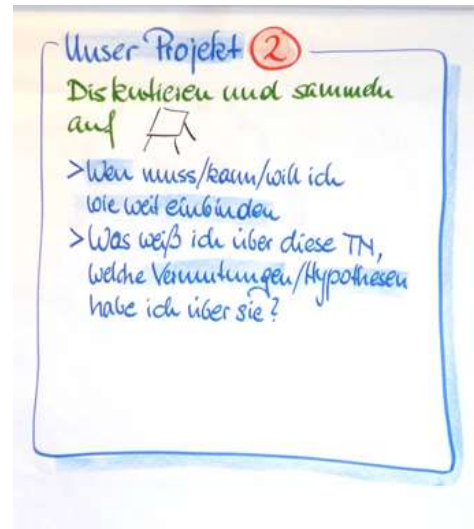 Unser Projekt 2
Diskutieren und sammeln
auf
>Wen muss/kann/will ich
wie weit einbinden
>Was weiß ich über diese TN,
welche Vermutungen/Hypothesen
habe ich über sie?